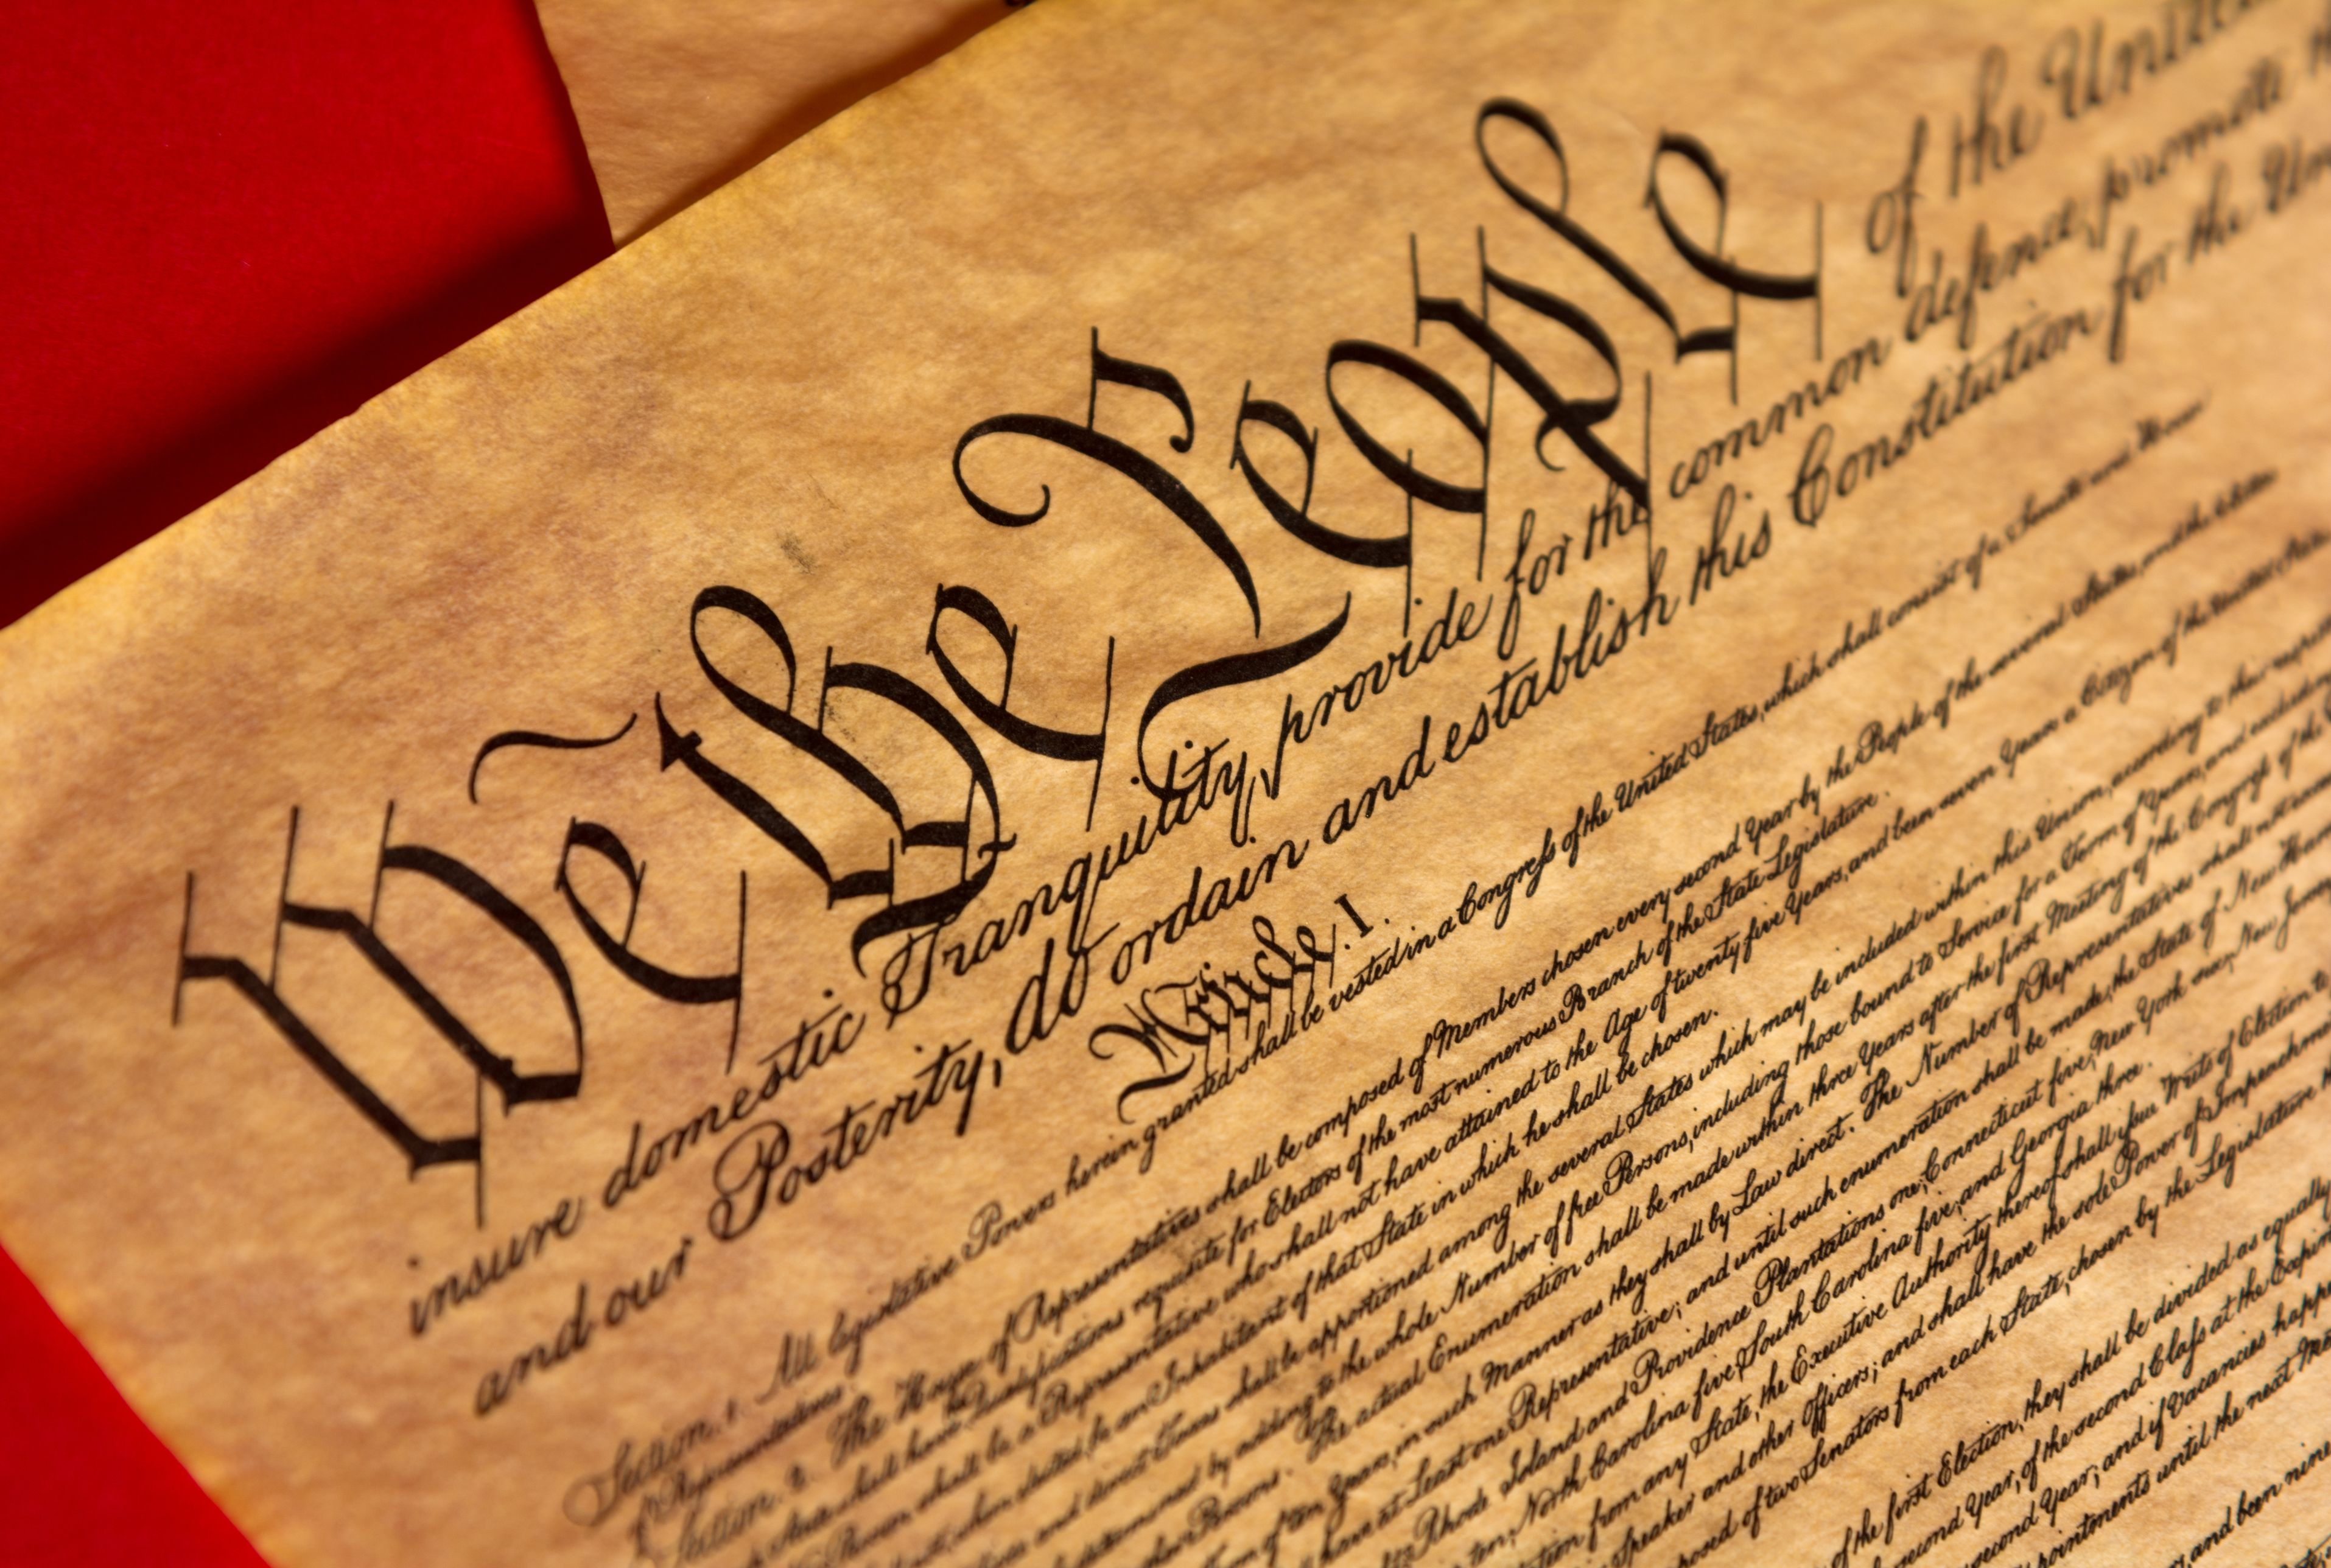 We the People of the United
insure domestic Tranquility, provide for the common defence, promote the
and our Posterity, do ordain and establish this Constitution for the Uni
Article. I.
Section. 1. All legislative Powers herein granted shall be vested in a Congress of the United States, which shall consist of a Senate and
of Representatives.
Section. 2. The House of Representatives shall be composed of Members chosen every second Year by the People of the several States, and the
shall have Qualifications requisite for Electors of the most numerous Branch of the State Legislature.
Person shall be a Representative who shall not have attained to the Age of twenty five Years, and been seven Years a Citizen of the
when elected, be an Inhabitant of that State in which he shall be chosen.
and direct Taxes shall be apportioned among the several States which may be included within this Union, according to their
determined by adding to the whole Number of free Persons, including those bound to Service for a Term of Years, and
Persons. The actual Enumeration shall be made within three Years after the first Meeting of the Congress of the
of ten Years, in such Manner as they shall by Law direct. The Number of Representatives shall not
have at Least one Representative; and until such enumeration shall be made, the State of New
Rhode Island and Providence Plantations one, Connecticut five, New York six, New Jersey
ten, North Carolina five, South Carolina five, and Georgia three.
from any State, the Executive Authority thereof shall issue Writs of Election to
Speaker and other Officers; and shall have the sole Power of Impeachment
of two Senators from each State, chosen by the Legislature
of the first Election, they shall be divided as equally
second Year, of the second Class at the Expi
second Year; and if Vacancies happe
until the next Me
and been nine